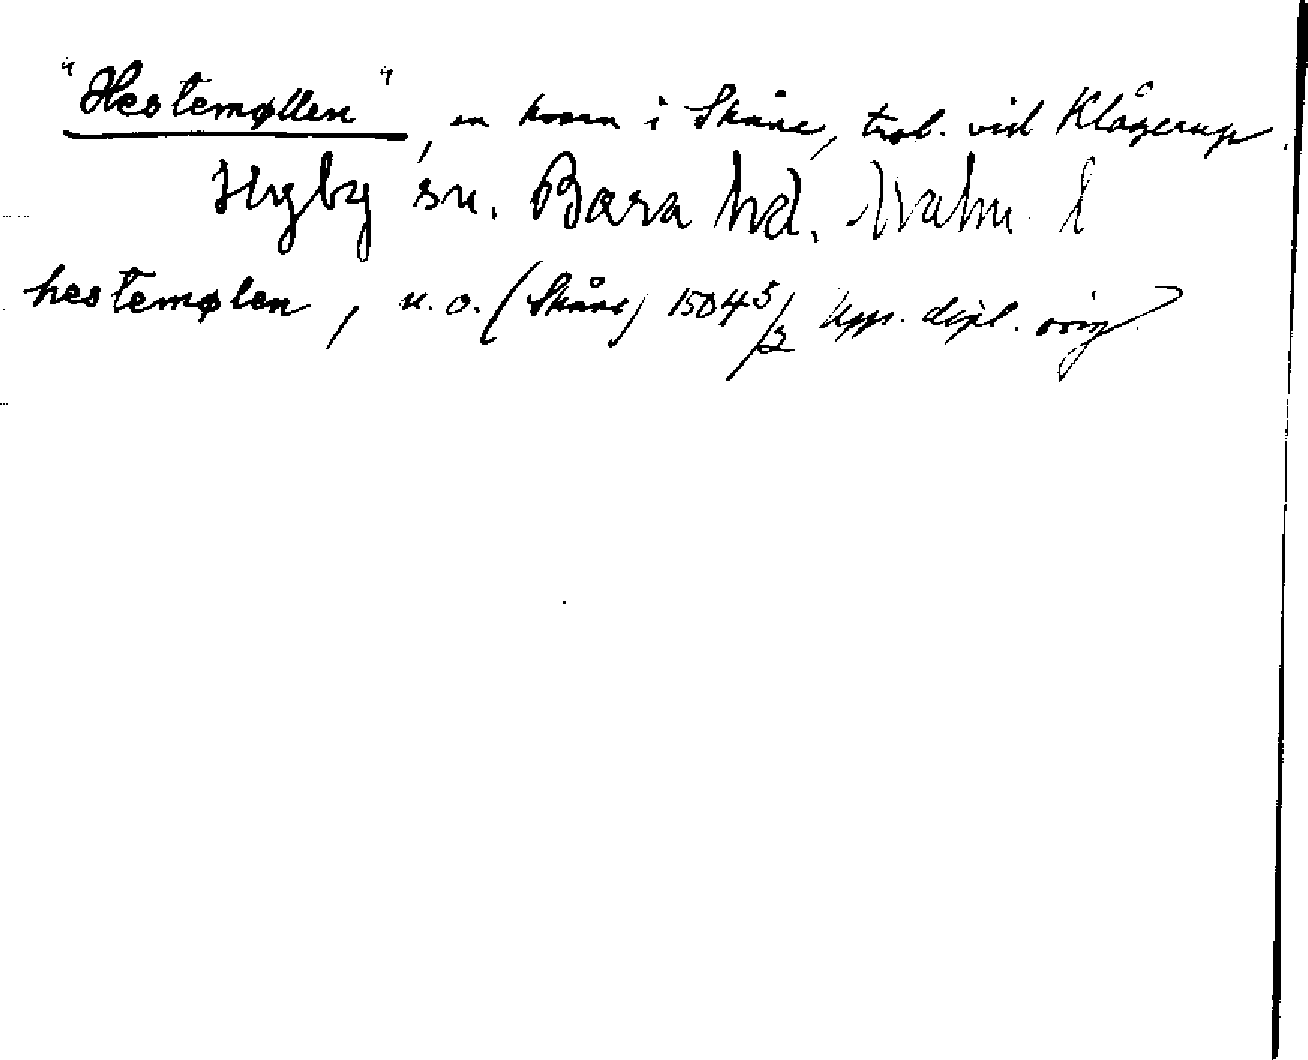 "Hestemøllen", en kvarn i Skåne, trol. vid Klågerup.
Hyby sn. Bara hd. Malm. l
hestemølen, u.o. (Skåne) 1504 5/3 Upps. dipl. orig.